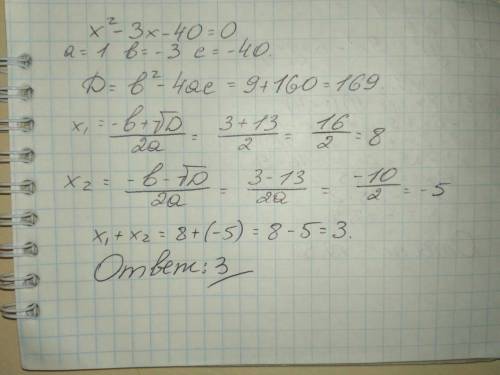 x² - 3x - 40 = 0
a = 1 в = -3 c = -40.
D = в² - 4ac = 9 + 160 = 169.
x₁ = (-в + √D)/2a = (3 + 13)/2 = 16/2 = 8
x₂ = (-в - √D)/2a = (3 - 13)/2a = (-10)/2 = -5
x₁ + x₂ = 8 + (-5) = 8 - 5 = 3.
Ответ: 3